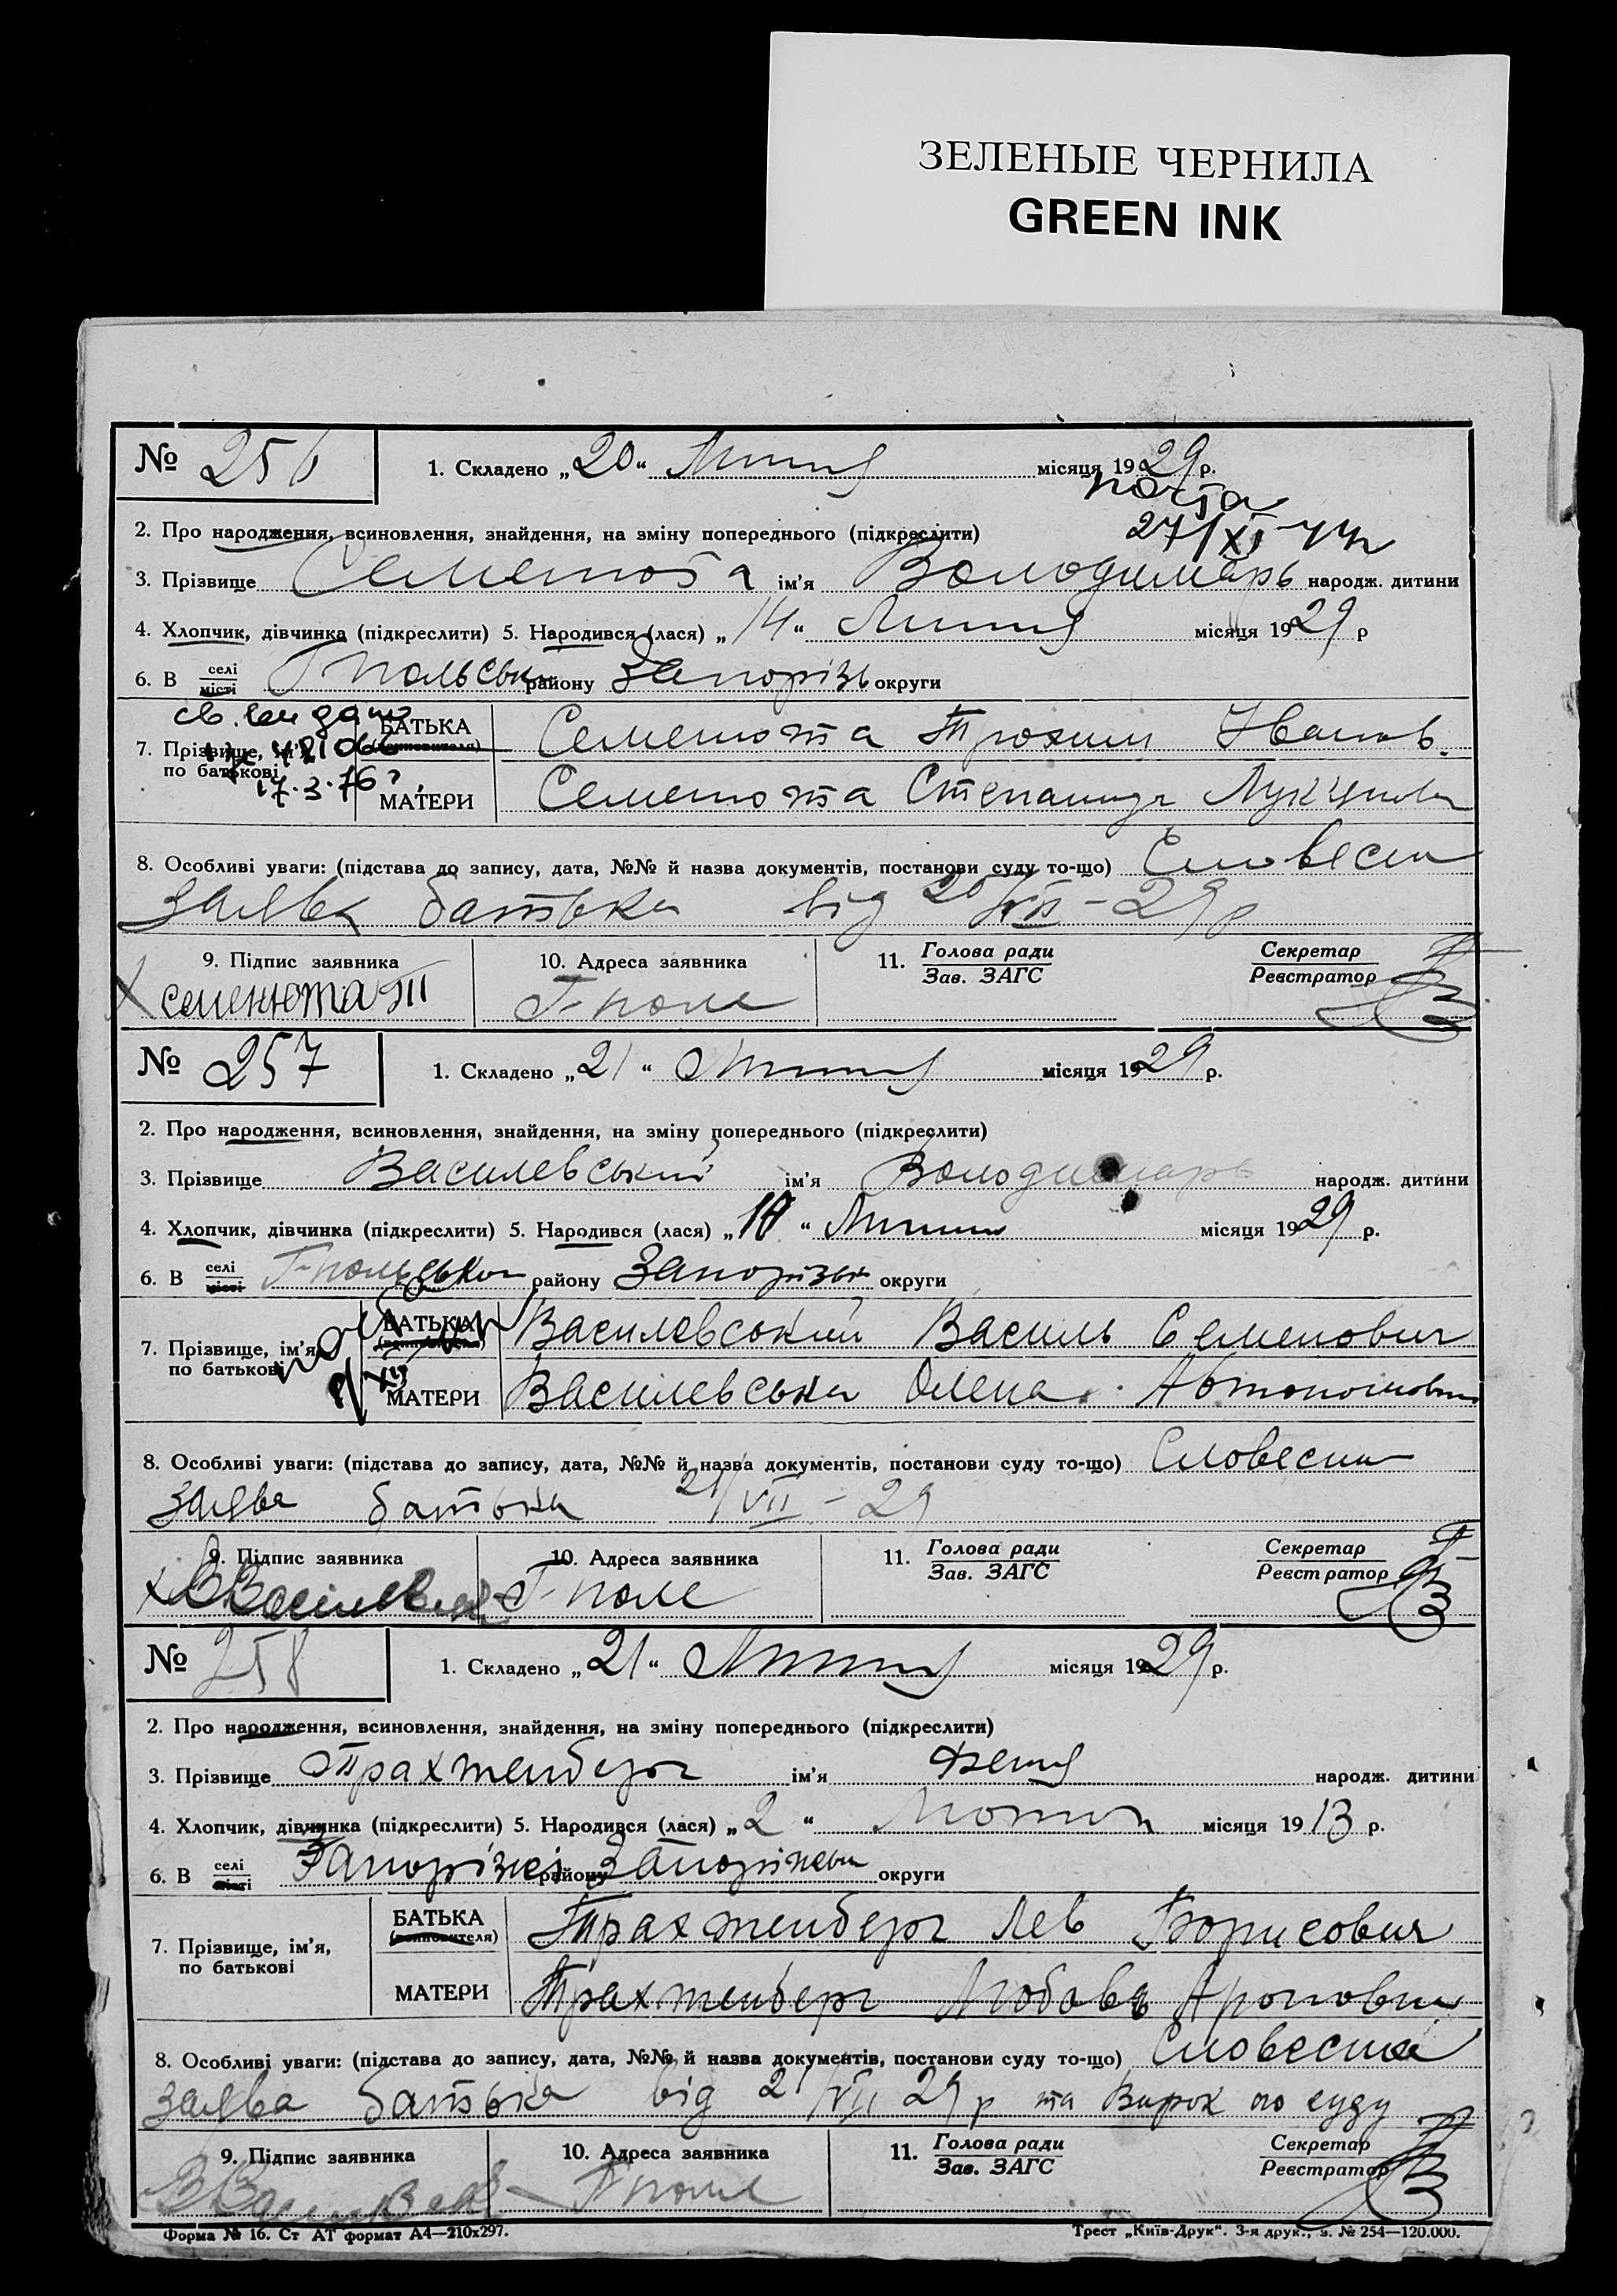 ЗЕЛЕНЫЕ ЧЕРНИЛА
GREEN INK
№ 256
1. Складено „20“ Липня місяця 1929 р.
почта
27/XI
2. Про народження, всиновлення, знайдення, на зміну попереднього (підкреслити)
3. Прізвище Семенюта ім’я Володимарь народж. дитини
4. Хлопчик, дівчинка (підкреслити) 5. Народився (лася) „14“ Липня місяця 1929 р
6. В селі місті Гпольськ району Запорізь округи
св. видано
7. Прізвище, ім’я, по батькові
17.3.76
БАТЬКА Семенюта Трохим Іванов.
МАТЕРИ Семенюта Степанида
8. Особливі уваги: (підстава до запису, дата, №№ й назва документів, постанови суду то-що) Словесна
заява батька від 20/VII-29 р
9. Підпис заявника
Семенюта Т
10. Адреса заявника
Г-поле
11. Голова ради
Зав. ЗАГС
Секретар
Реєстратор
№ 257
1. Складено „21“ Липня місяця 1929 р.
2. Про народження, всиновлення, знайдення, на зміну попереднього (підкреслити)
3. Прізвище Василевський ім’я Володимарь народж. дитини
4. Хлопчик, дівчинка (підкреслити) 5. Народився (лася) „ “ Липня місяця 1929 р.
6. В селі місті Г-польської району Запорізьк округи
7. Прізвище, ім’я, по батькові
БАТЬКА Василевський Василь Семенович
МАТЕРИ Василевська Олена Автономовна
8. Особливі уваги: (підстава до запису, дата, №№ й назва документів, постанови суду то-що) Словесна
заява батька 21/VII - 29
9. Підпис заявника
10. Адреса заявника
Г-поле
11. Голова ради
Зав. ЗАГС
Секретар
Реєстратор
№ 258
1. Складено „21“ Липня місяця 1929 р.
2. Про народження, всиновлення, знайдення, на зміну попереднього (підкреслити)
3. Прізвище Трахтенберг ім’я народж. дитини
4. Хлопчик, дівчинка (підкреслити) 5. Народився (лася) „2“ місяця 1913 р.
6. В селі місті Запоріжжі району Запоріжськ округи
7. Прізвище, ім’я, по батькові
БАТЬКА Трахтенберг Лев Борисович
МАТЕРИ Трахтенберг Любовь Ароновна
8. Особливі уваги: (підстава до запису, дата, №№ й назва документів, постанови суду то-що) Словесна
заява батька від 21/VII 29 р та Вирок по суду
9. Підпис заявника
10. Адреса заявника
Г поле
11. Голова ради
Зав. ЗАГС
Секретар
Реєстратор
Форма № 16. Ст АТ формат А4—210x297.
Трест „Київ-Друк“. 3-я друк., з. № 254—120.000.